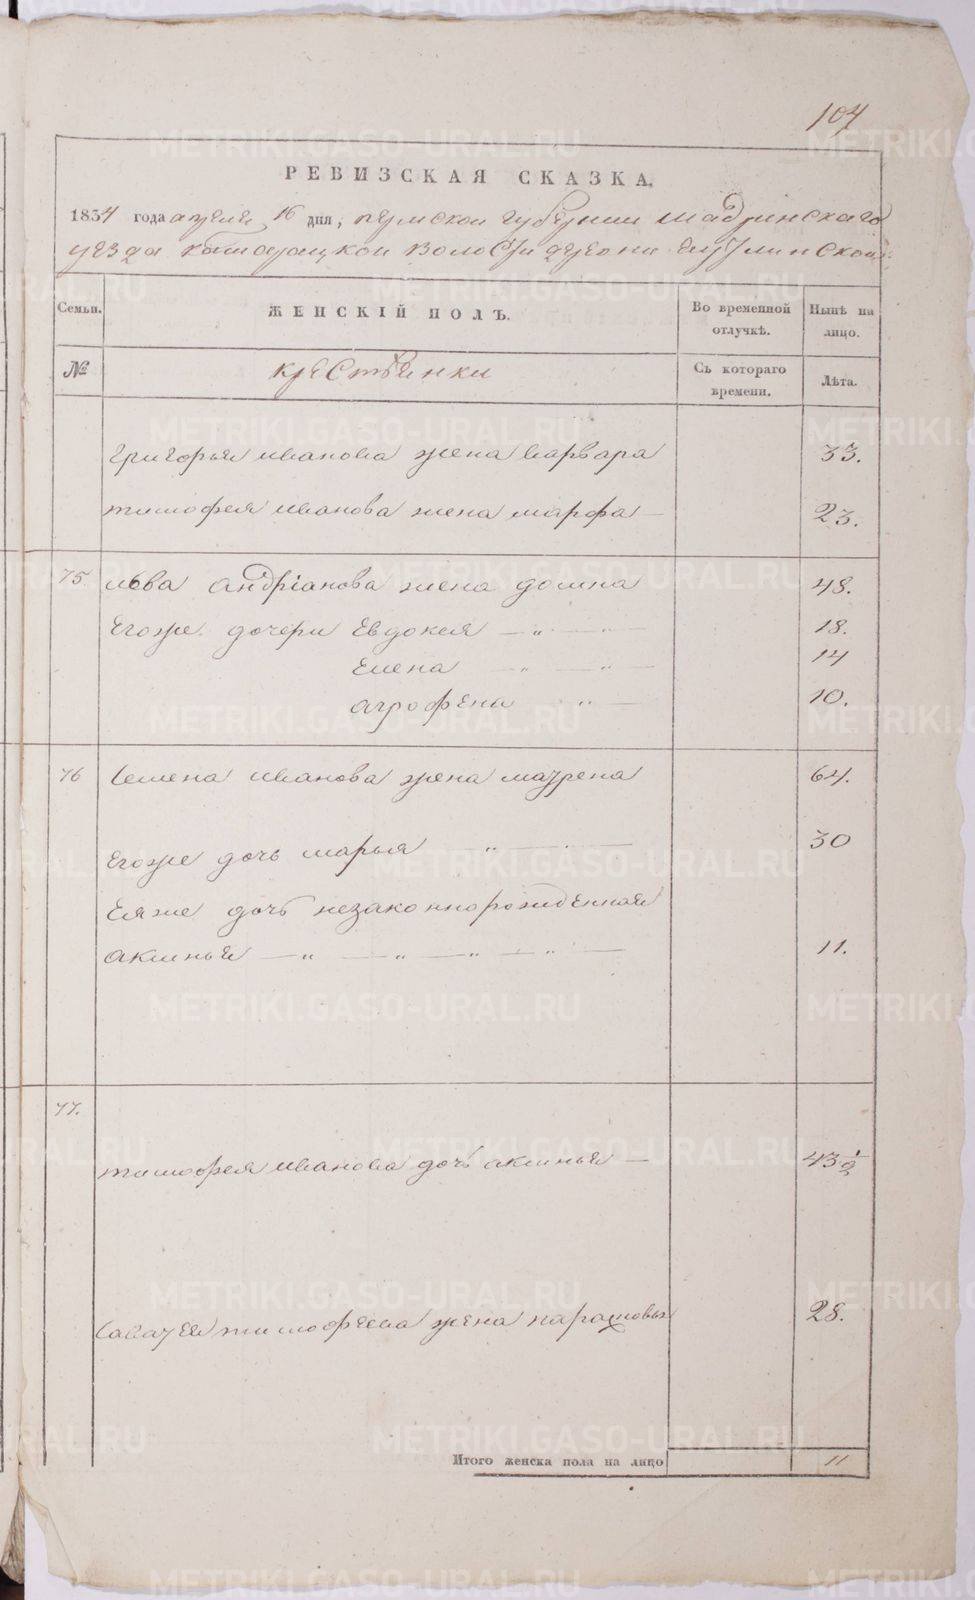 104
РЕВИЗСКАЯ СКАЗКА.
1834 года апреля 16 дня, пермской губернии шадринскаго
уезда волости деревни
Семьи. ЖЕНСКІЙ ПОЛЪ. Во временной отлучкѣ. Нынѣ на лицо.
№ крестьянки Съ котораго времени. Лѣта.
Григорья иванова жена варвара 33.
тимофея иванова жена марфа — 23.
75. Льва андріанова жена домна 48.
Егоже дочери Евдокея — „ — — 18.
Елена — „ — „ — 14
агрофена „ — 10.
76 Семена иванова жена маурена 64.
Егоже дочь марья „ — — 30
Еяже дочь незаконнорожденная
акинья — „ — „ — „ — „ — 11.
77.
тимофея иванова дочь акинья — 43 1/2
тимофеева жена 28.
Итого женска пола на лицо 11
METRIKI.GASO-URAL.RU